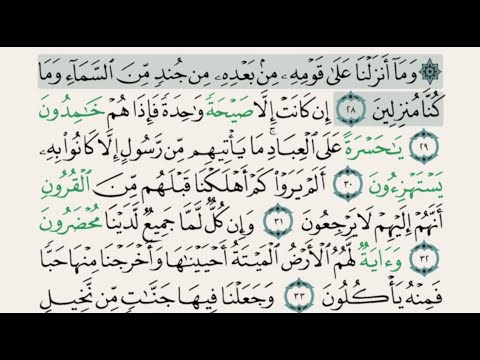 ۞ وَمَآ أَنزَلْنَا عَلَىٰ قَوْمِهِۦ مِنۢ بَعْدِهِۦ مِن جُندٍ مِّنَ ٱلسَّمَآءِ وَمَا
كُنَّا مُنزِلِينَ ٢٨ إِن كَانَتْ إِلَّا صَيْحَةً وَٰحِدَةً فَإِذَا هُمْ خَـٰمِدُونَ
٢٩ يَـٰحَسْرَةً عَلَى ٱلْعِبَادِ ۚ مَا يَأْتِيهِم مِّن رَّسُولٍ إِلَّا كَانُوا۟ بِهِۦ
يَسْتَهْزِءُونَ ٣٠ أَلَمْ يَرَوْا۟ كَمْ أَهْلَكْنَا قَبْلَهُم مِّنَ ٱلْقُرُونِ
أَنَّهُمْ إِلَيْهِمْ لَا يَرْجِعُونَ ٣١ وَإِن كُلٌّ لَّمَّا جَمِيعٌ لَّدَيْنَا مُحْضَرُونَ
٣٢ وَءَايَةٌ لَّهُمُ ٱلْأَرْضُ ٱلْمَيْتَةُ أَحْيَيْنَـٰهَا وَأَخْرَجْنَا مِنْهَا حَبًّا
فَمِنْهُ يَأْكُلُونَ ٣٣ وَجَعَلْنَا فِيهَا جَنَّـٰتٍ مِّن نَّخِيلٍ